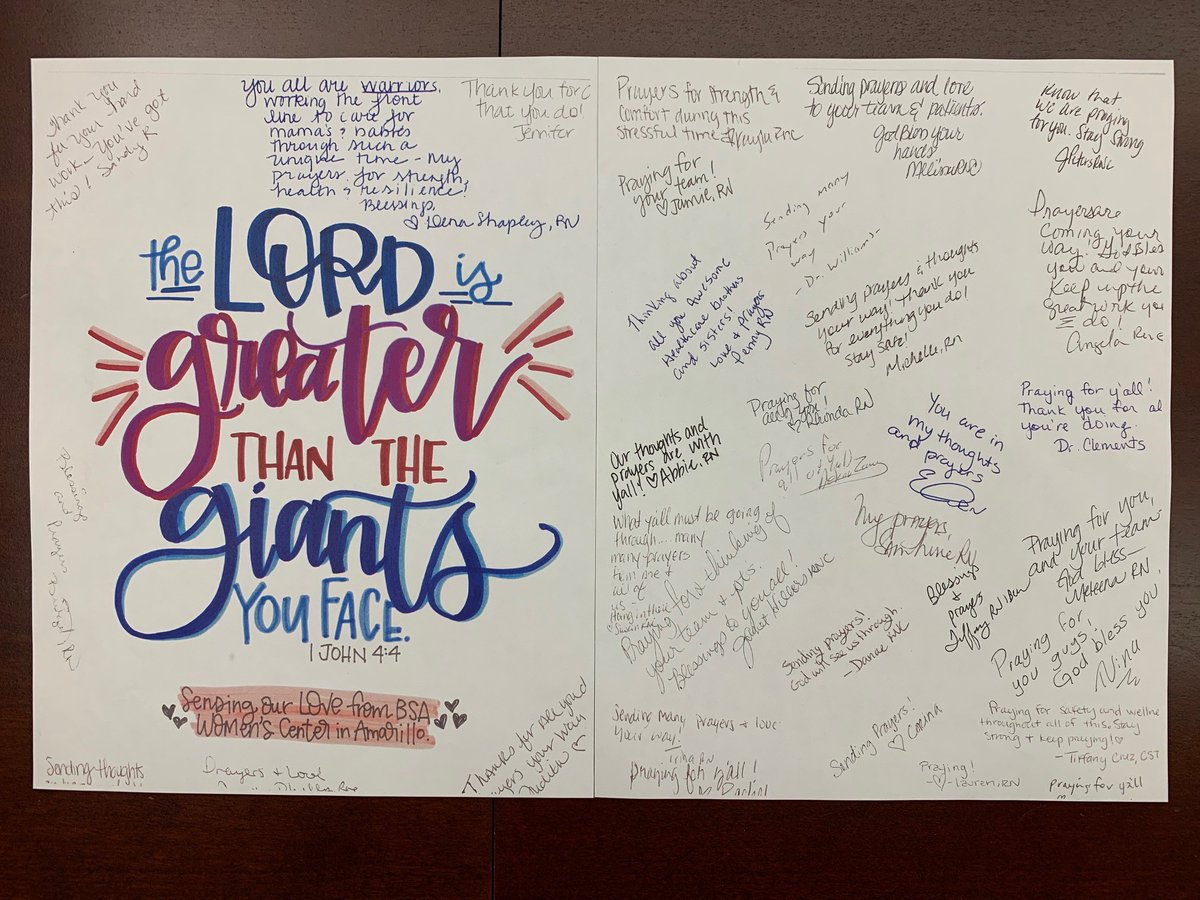 Thank you
for your hard
work - You've got
this! Sandy R
You all are warriors,
working the front
line to care for
mama's & babies
through such a
unique time - My
prayers for strength,
health & resilience!
Blessings,
♡ Dena Shapley, RN
Thank you for
that you do!
Jennifer
the LORD is
greater
THAN THE
giants
YOU FACE.
1 JOHN 4:4
Sending our Love from BSA
Women's Center in Amarillo.
Blessings
and Prayers
Sending thoughts
Prayers & Love
Thanks for all you do
your way
Prayers for Strength &
comfort during this
stressful time
Praying for
your team!
♡ Jamie, RN
Sending prayers and love
to your team & patients.
God Bless your
hands
Melissa RNC
Know that
we are praying
for you. Stay Strong
Sending many
Prayers your
way
- Dr. Williams
Prayers are
Coming your
way! God Bles
you and your
Keep up the
great work you
do!
Angela
Thinking about
all you awesome
Healthcare brothers
and sisters!
Love & prayers
Penny RN
Sending prayers & thoughts
your way! Thank you
for everything you do!
Stay Safe!
Michelle, RN
Praying for
all of you!
♡ Rhonda RN
Praying for y'all!
Thank you for al
you're doing.
Dr. Clements
You are in
my thoughts
and prayers
Our thoughts and
prayers are with
y'all! ♡ Abbie, RN
Prayers for
all of y'all
What y'all must be going
through... many
many prayers
from me &
all of
us -
Hang in there
Praying for & thinking of
your team & pts.
Blessings to you all!
My prayers,
Sunshine RN
Praying for you,
and your team
God bless -
Meleena RN
Blessings
&
prayers
Tiffany RN
Sending prayers!
God will see us through.
- Danae
Praying for
you guys!
God bless you
Nina
Sending many Prayers & love
Your way!
Trina RN
praying for y'all!
Sending Prayers!
♡ Corina
Praying!
♡ - Lauren, RN
Praying for safety and wellne
throughout all of this. Stay
strong & keep praying! ♡
- Tiffany Cruz, CST
praying for y'all